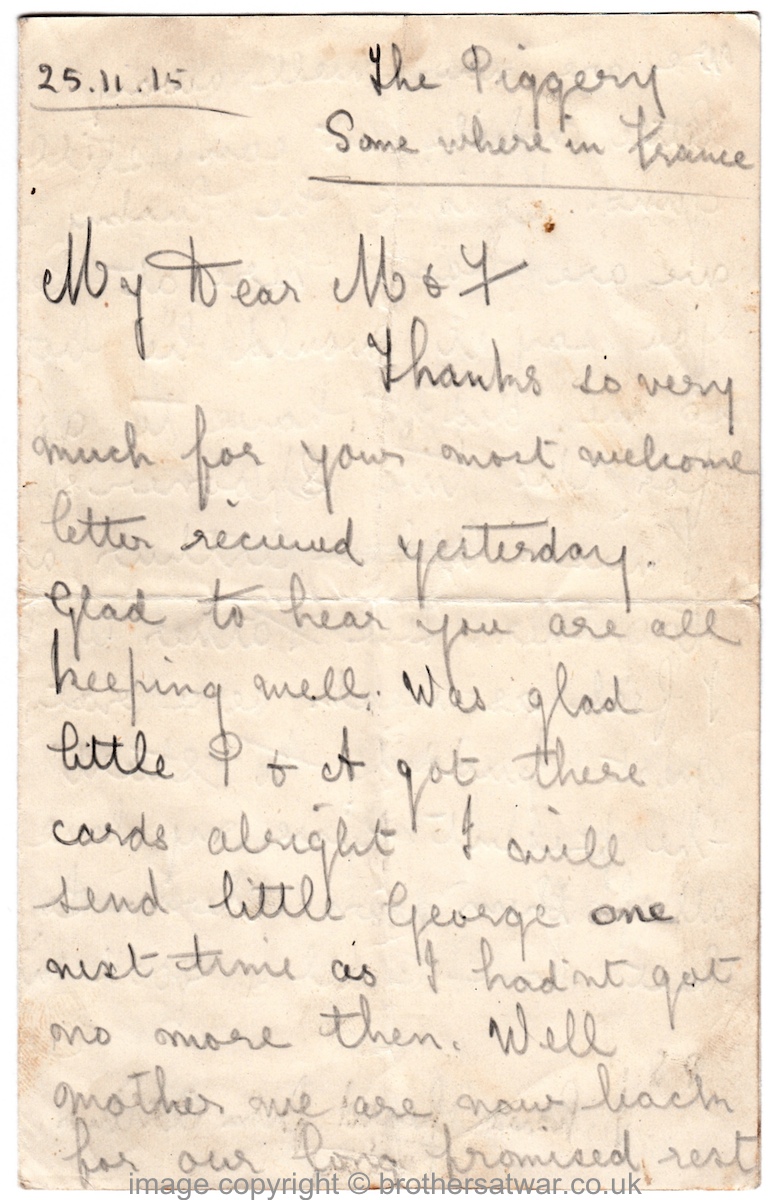 25.11.15
The Piggery
Some where in France
My Dear M & F
Thanks so very
much for your most welcome
letter recieved yesterday.
Glad to hear you are all
keeping well. Was glad
little P & A got there
cards alright I will
send little George one
next time as I hadnt got
no more then. Well
mother we are now back
for our long promised rest
image copyright © brothersatwar.co.uk